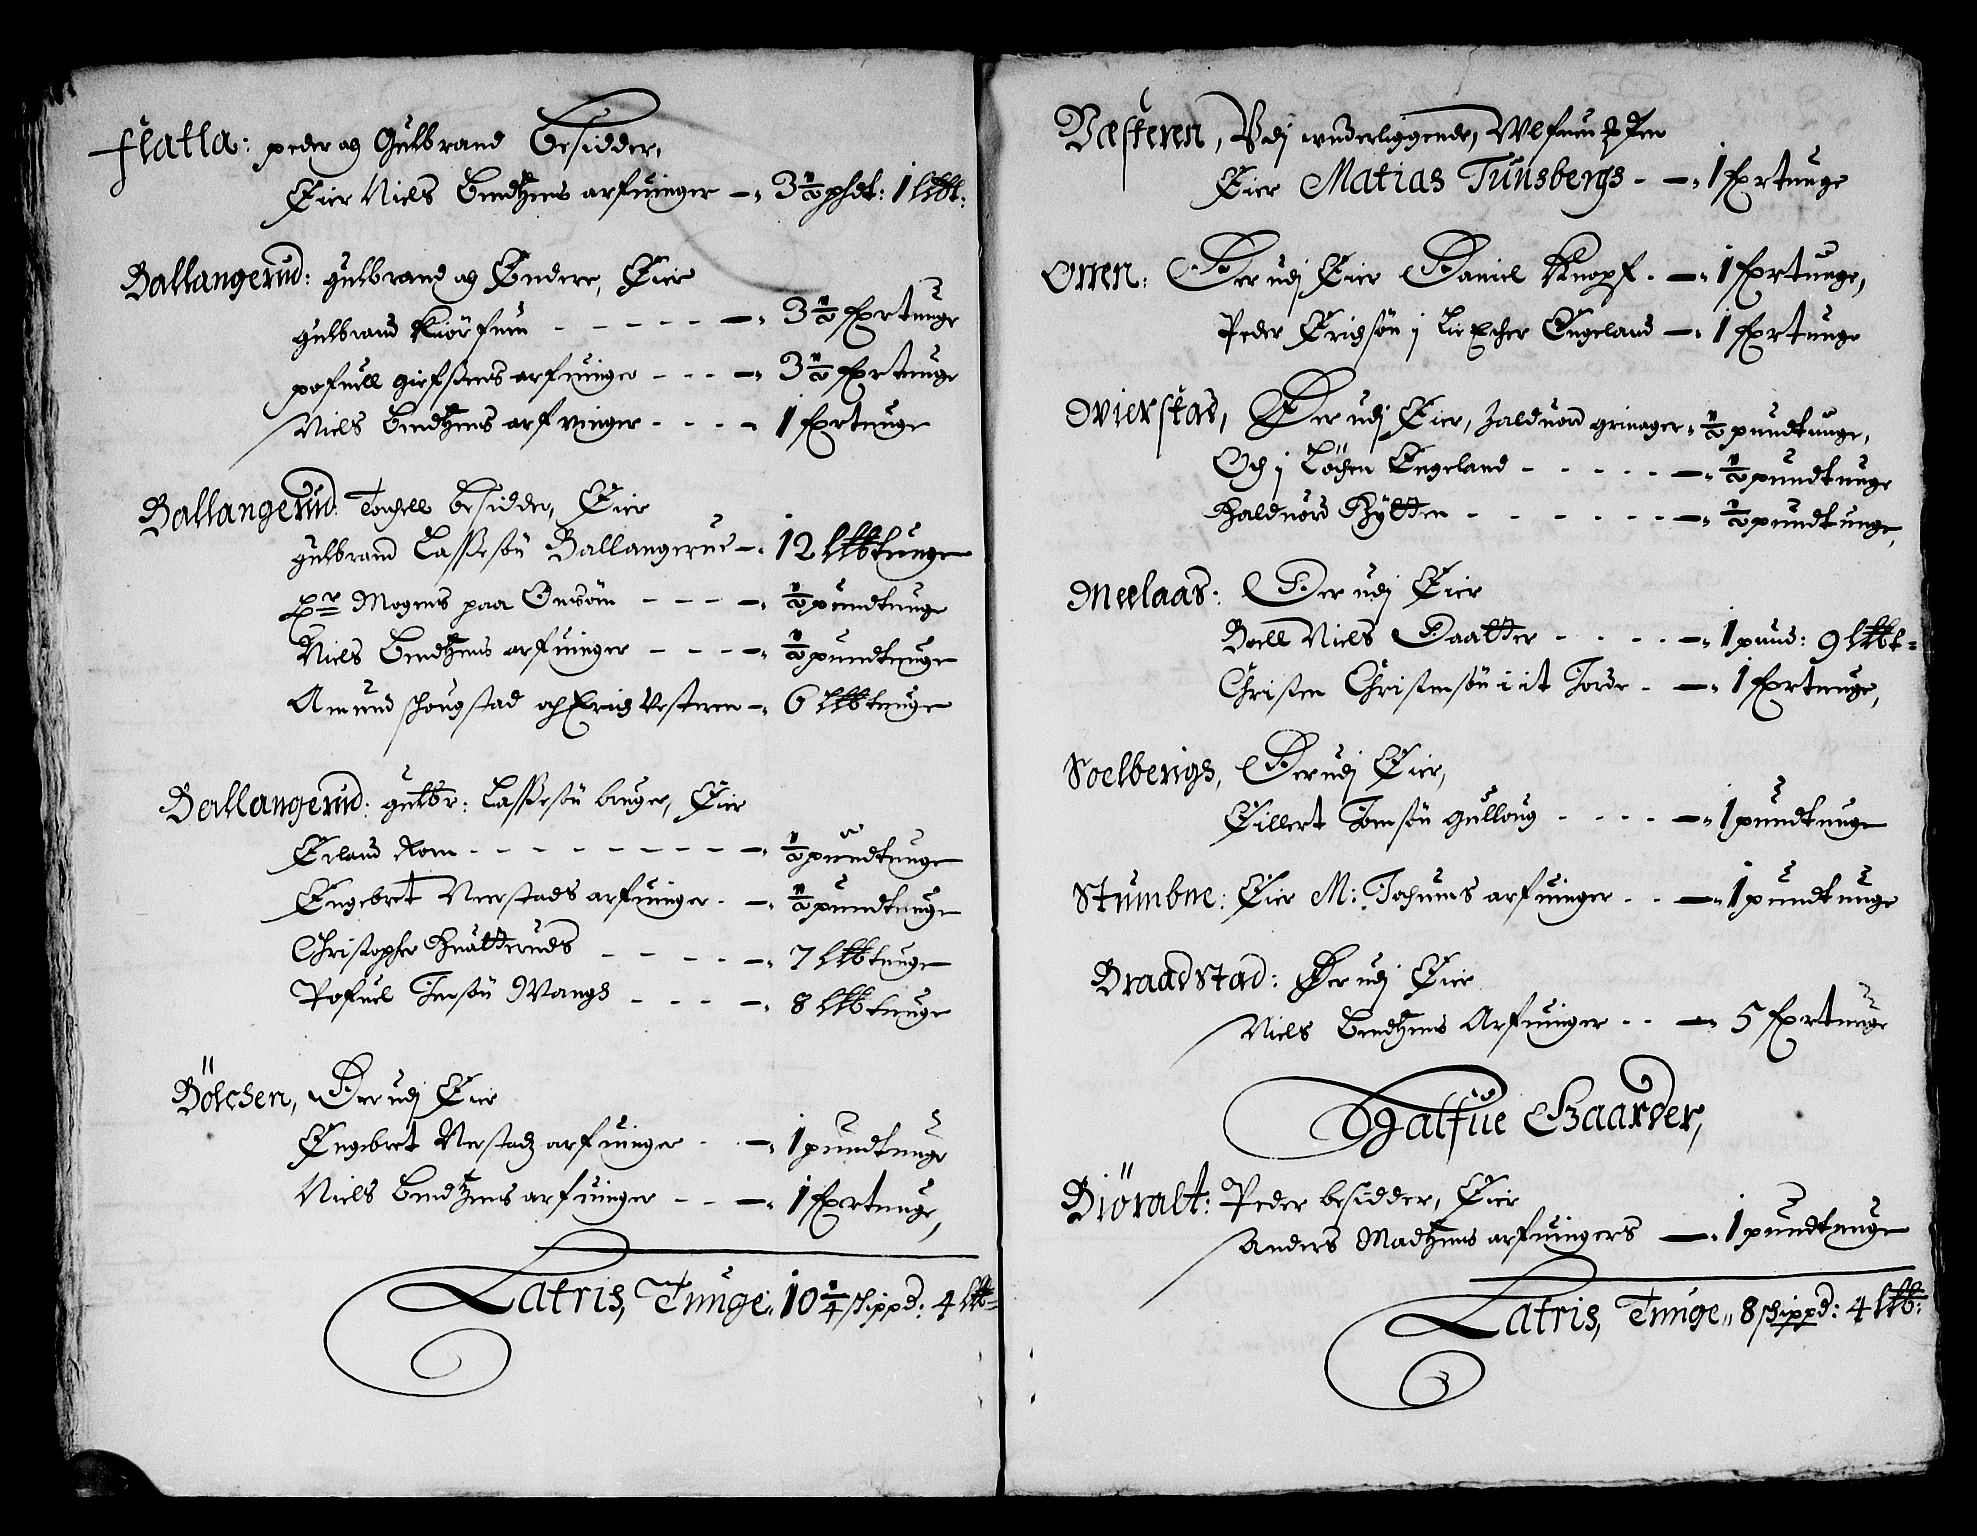 flatla: peder og Gulbrand Besidder,
Eier Niels Bendtzens arfuinger — 3½ phdt: 1 lbt:
Ballangerud: gulbrand og Endere, Eier
gulbrand Kiørfuen - - - - - — 3½ fertunge
pofuell giefsens arfuinger - - - — 3½ fertunge
Niels Bendtzens arfvinger - - - - 1 fertunge
Ballangerud: Torchell besidder, Eier
gulbrand Lassesøn Ballangerud — 12 lbtunge
Hr Mogens paa Onsøen - - - — ½ pundtunge
Niels Bendtzens arfuinger - - - — ½ pundtunge
Amund Schougstad och Erich Vesteren — 6 lbtunge
Ballangerud: gulbr: Lassesøn bruger, Eier
Erland Roen - - - - - - - - - — ½ pundtunge
Engebret Neerstads arfuinger - — ½ pundtunge
Christopher Huatteruds - - - - — 7 lbtunge
Pofuel Jensøn Wangs - - - — 8 lbtunge
Bölchen, Der udj Eier
Engebret Nerstadz arfuinger - - — 1 pundtunge
Niels Bendtzens arfuinger - - — 1 fertunge,
Latris, Tunge, 10¼ schippd: 4 lb
Væsteren, Vdj underliggende,
Eier Matias Tunsbergs - — 1 fertunge
Orren: Der udj Eier Daniel Knopf - — 1 fertunge,
Peder Erichsøn j Lie Echer Engeland — 1 fertunge
Ovierstad, Der udj Eier, Halduord grinager ½ pundtunge,
Och j Løchen Engeland - - - - - — ½ pundtunge
Halduord Hytten - - - - - - — ½ pundtunge,
Meelaas: Der udj Eier
Boell Niels Daatter - - - - — 1 pund: 9 lbt
Christen Christensøn i it Jorde - — 1 fertunge,
Soelbergs, Der udj Eier,
Eillert Tomsøn gulloug - - - - — 1 pundtunge
Stumbne: Eier M: Jochums arfuinger - - — 1 pundtunge
Braadstad: Der udj Eier
Niels Bendtzens Arfuinger - - — 5 fertunge
Halfue Gaarder,
Biöralt: Peder besidder, Eier
Anders Madtzens arfuingers — 1 pundtunge
Latris, Tunge, 8 schippd: 4 lb: